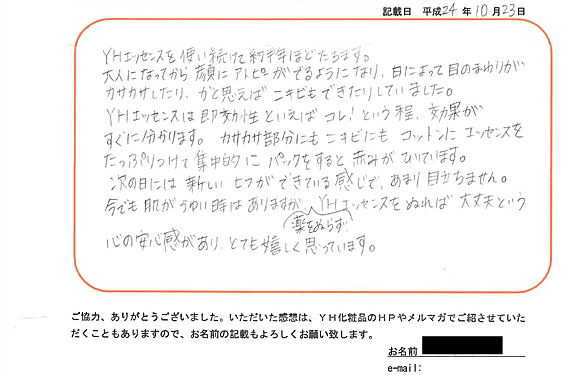 記載日 平成24年10月23日
YHエッセンスを使い続けて約半年ほどたちます。
大人になってから顔にアトピーがでるようになり、日によって目のまわりが
カサカサしたり、かと思えばニキビもできたりしていました。
YHエッセンスは即効性といえばコレ!という程、効果が
すぐに分かります。カサカサ部分にもニキビにもコットンにエッセンスを
たっぷりつけて集中的にパックをすると赤みがひいています。
次の日には新しいヒフができている感じで、あまり目立ちません。
今でも肌がかゆい時はありますが、YHエッセンスをぬれば大丈夫という
薬をぬらず
心の安心感があり、とても嬉しく思っています。
ご協力、ありがとうございました。いただいた感想は、YH化粧品のHPやメルマガでご紹介させていた
だくこともありますので、お名前の記載もよろしくお願い致します。
お名前
e-mail: